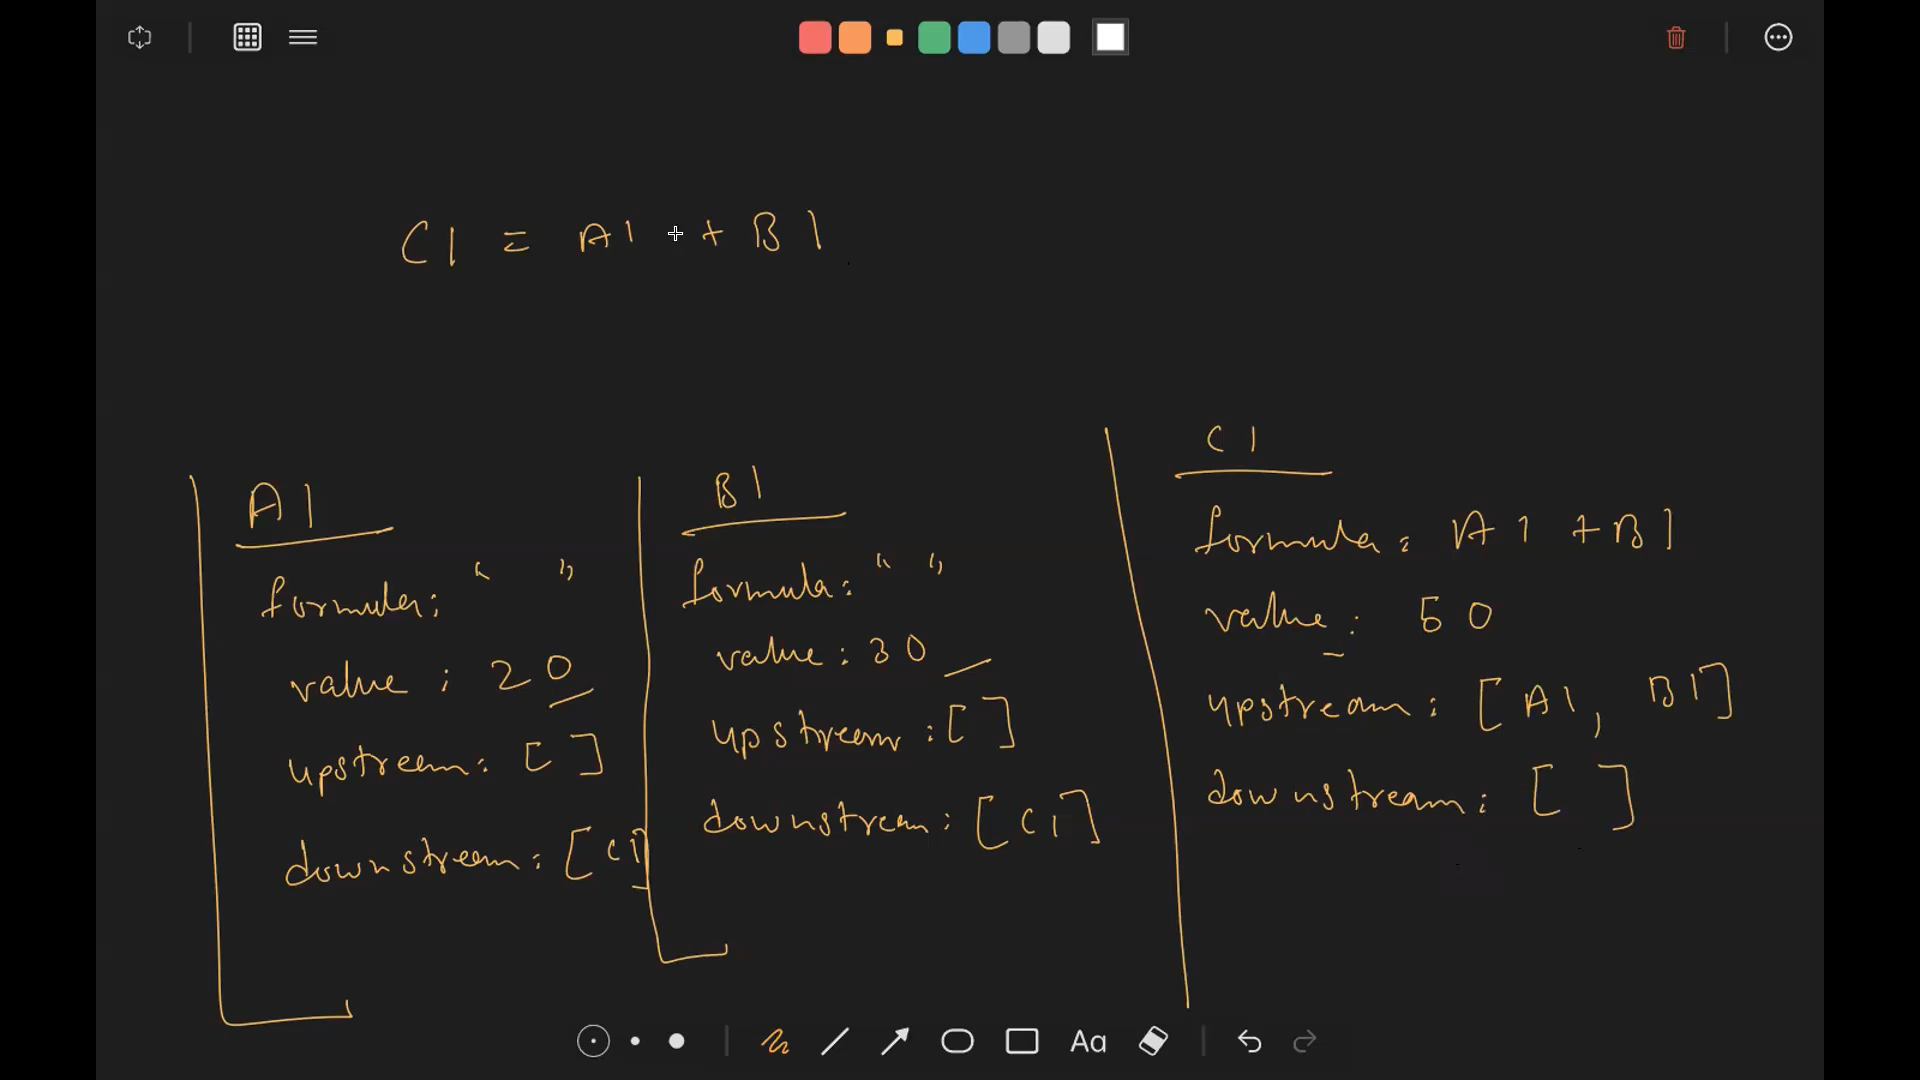 C1 = A1 + B1
A1
formula: " "
value : 20
upstream: [ ]
downstream: [C1]
B1
formula: " "
value : 30
upstream : [ ]
downstream : [C1]
C1
formula : A1 + B1
value : 50
upstream : [A1, B1]
downstream : [ ]
Aa